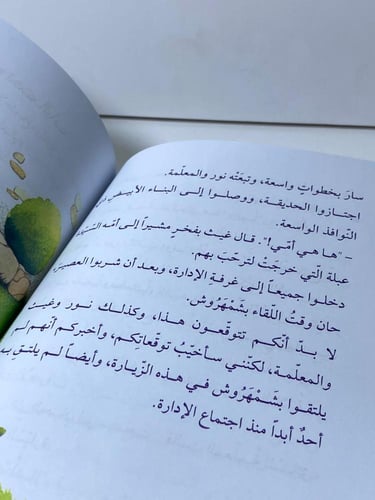 سارَ بخطواتٍ واسعة، وتبعَتْه نور والمعلّمة.
اجتازوا الحديقة، ووصلوا إلى البناء الأبيض
النّوافذ الواسعة.
- "ها هي أمّي!". قال غيث بفخرٍ مشيراً إلى أمّه السّيّدة
عبلة الّتي خرجَتْ لترحّب بهم.
دخلوا جميعاً إلى غرفةِ الإدارة، وبعد أن شربوا العصير،
حان وقتُ اللّقاء بشَمْهَرُوش.
لا بدّ أنّكم تتوقّعون هذا، وكذلك نور وغيث
والمعلّمة، لكنّني سأخيّبُ توقّعاتِكم، وأخبركم أنّهم لم
يلتقوا بشَمْهَرُوش في هذه الزّيارة، وأيضاً لم يلتقِ به
أحدٌ أبداً منذ اجتماع الإدارة.